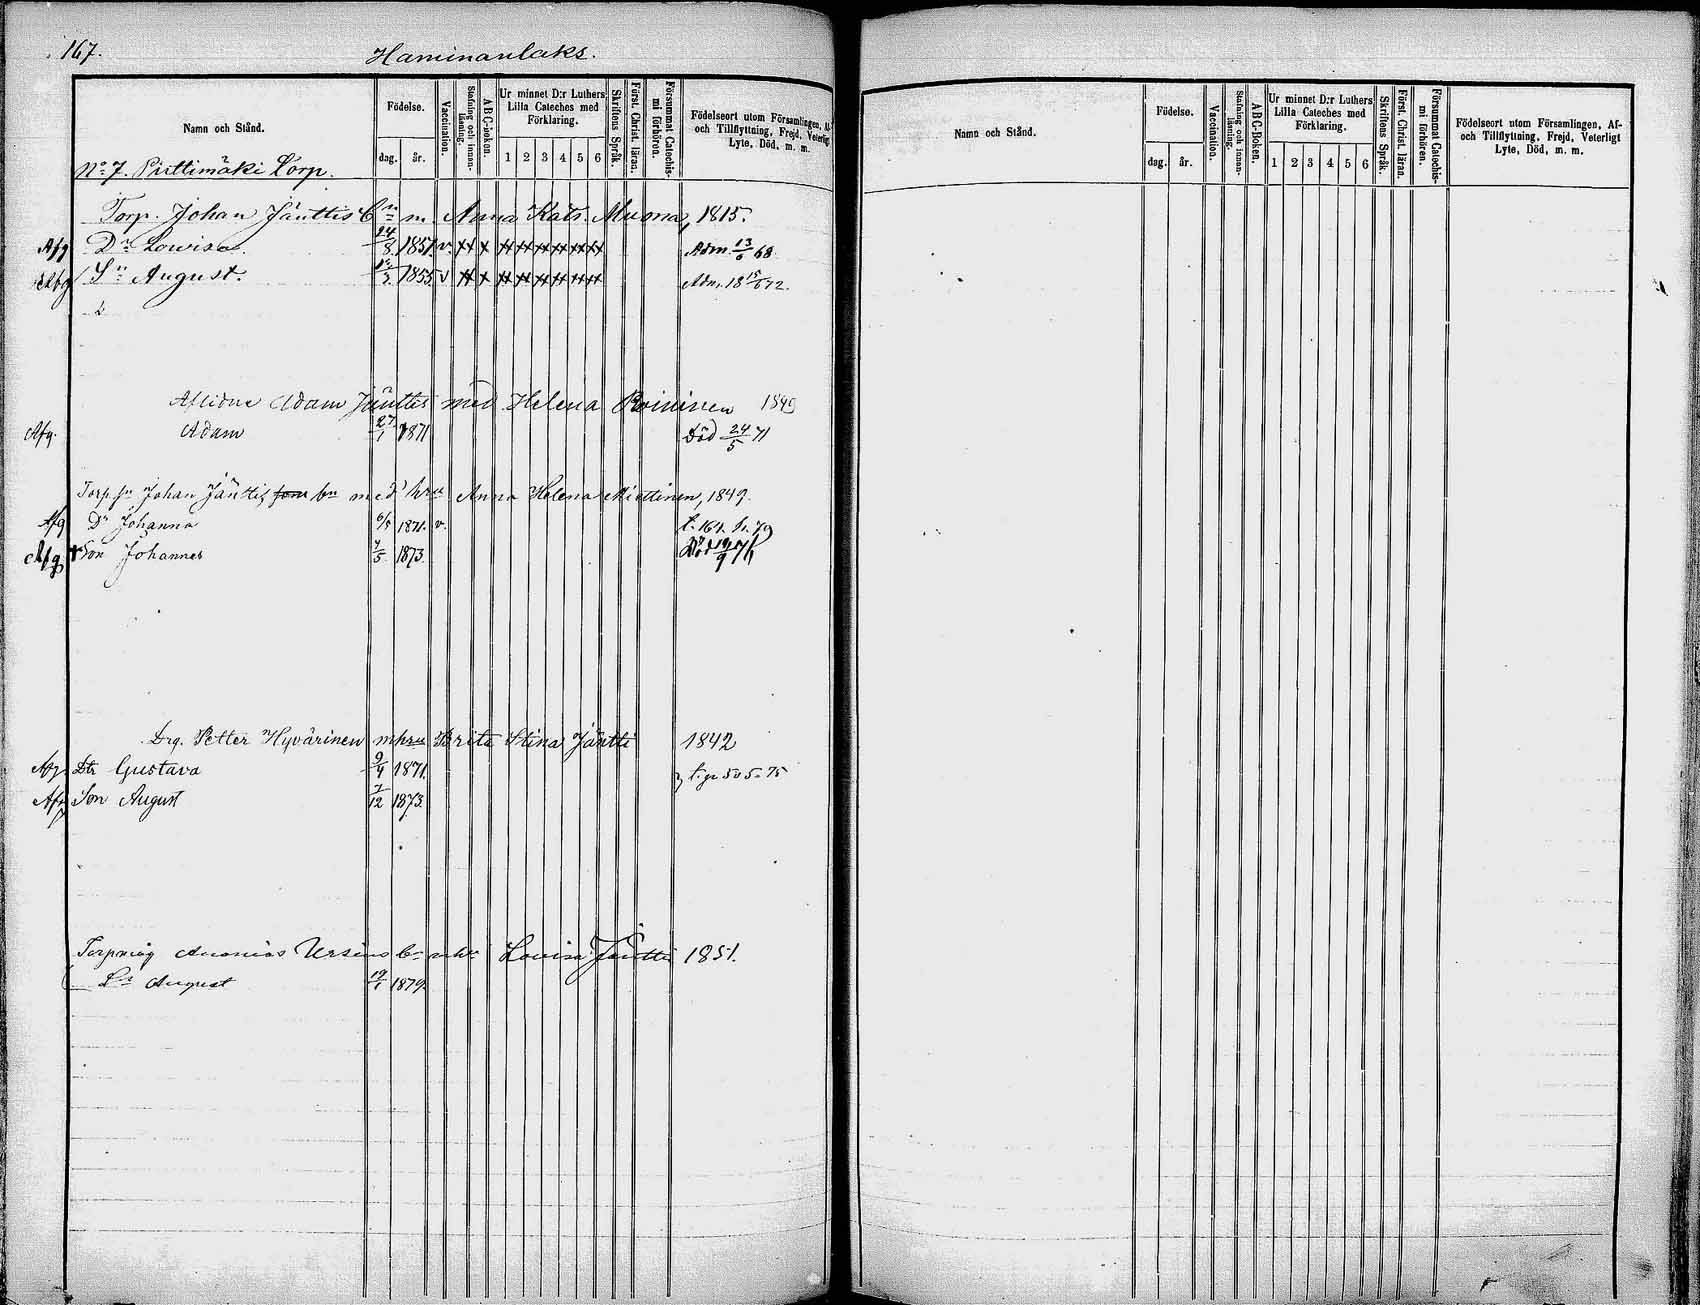 167.
Haminanlaks.
Namn och Stånd.
Födelse.
dag. år.
Vaccination.
Stafning och innan-läsning.
ABC-boken.
Ur minnet D:r Luthers Lilla Cateches med Förklaring.
1 2 3 4 5 6
Skriftens Språk.
Först. Christ. läran.
Försummat Catechis-mi förhören.
Födelseort utom Församlingen, Af-
och Tillflyttning, Frejd, Veterligt
Lyte, Död, m. m.
No 7. Puttimäki Torp.
Torp. Johan Jänttis bn m Anna Kats. Muona, 1815.
Afg Dr Lovisa. 24/8 1851. v. Adm. 13/6 68
Afg Sn August. 1855. v Adm. 18 15/6 72.
Aflidne Adam Jänttis med Helena Roininen 1849
Afg. Adam 27/1 1871 Död 24/5 71
Torp. sn Johan Jänttis bn med hru Anna Helena Miettinen, 1849.
Afg Dr Johanna 6/5 1871. v. t. 161. 79
Afg Son Johannes 4/5 1873. Död 19/9 76
Drg. Petter Hyvärinen m hru Brita Stina Jäntti 1842
Afg Dtr Gustava 9/4 1871.
Afg Son August 7/12 1873.
Ananias Ursinus Lovisa Jäntti 1851.
August 19/1 1879.
Namn och Stånd.
Födelse.
dag. år.
Vaccination.
Stafning och innan-läsning.
ABC-Boken.
Ur minnet D:r Luthers Lilla Cateches med Förklaring.
1 2 3 4 5 6
Skriftens Språk.
Först. Christ. läran.
Försummat Catechis-mi förhören.
Födelseort utom Församlingen, Af-
och Tillflyttning, Frejd, Veterligt
Lyte, Död, m. m.